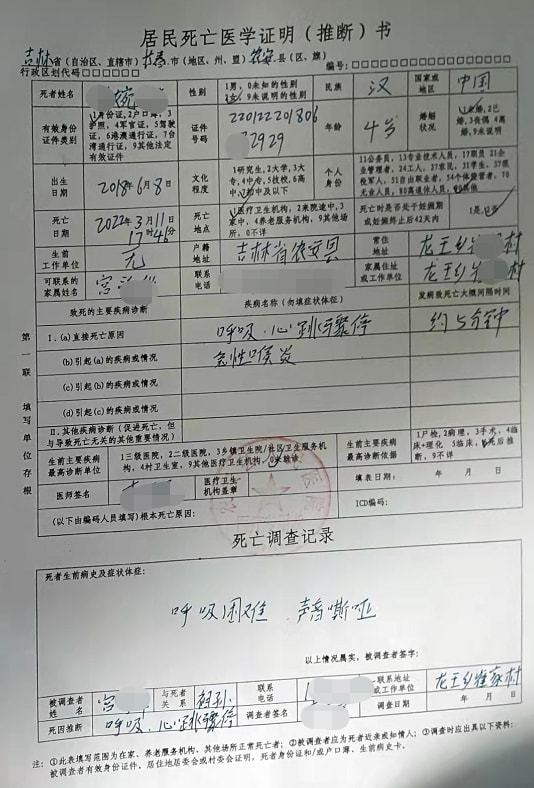 居民死亡医学证明（推断）书
吉林省（自治区、直辖市）长春市（地区、州、盟）农安县（区、旗）
行政区划代码□□□□□□ 编号：□□□□□□-□□□□□□□□
死者姓名 性别 1男，0未知的性别 2女，9未说明的性别 民族 汉 国家或地区 中国
有效身份证件类别 1身份证，2户口簿，3护照，4军官证，5驾驶证，6港澳通行证，7台湾通行证，9其他法定有效证件 证件号码 220122201806 2929 年龄 4岁 婚姻状况 1未婚，2已婚，3丧偶，4离婚，9未说明
出生日期 2018年6月8日 文化程度 1研究生，2大学，3大专，4中专，5技校，6高中，7初中及以下 个人身份 11公务员，13专业技术人员，17职员，21企业管理者，24工人，27农民，31学生，37现役军人，51自由职业者，54个体经营者，70无业人员，80离退休人员，
死亡日期 2022年3月11日17时46分 死亡地点 1医疗卫生机构，2来院途中，3家中，4养老服务机构，9其他场所，0不详 死亡时是否处于妊娠期或妊娠终止后42天内 1是，2否
生前工作单位 无 户籍地址 吉林省农安县 常住地址 龙王乡 村
可联系的家属姓名 宫 联系电话 家属住址或工作单位 龙王乡 村
致死的主要疾病诊断 疾病名称（勿填症状体征） 发病致死亡大概间隔时间
第一联 填写单位存根
Ⅰ.(a)直接死亡原因 呼吸、心跳骤停 约5分钟
(b)引起(a)的疾病或情况 急性喉炎
(c)引起(b)的疾病或情况
(d)引起(c)的疾病或情况
Ⅱ.其他疾病诊断（促进死亡，但与导致死亡无关的其他重要情况）
生前主要疾病最高诊断单位 1三级医院，2二级医院，3乡镇卫生院/社区卫生服务机构，4村卫生室，9其他医疗卫生机构，0未就诊 生前主要疾病最高诊断依据 1尸检，2病理，3手术，4临床+理化，5临床，6死后推断，9不详
医师签名 医疗卫生机构盖章 填表日期： 年 月 日
（以下由编码人员填写）根本死亡原因： ICD编码：
死亡调查记录
死者生前病史及症状体征：
呼吸困难 声音嘶哑
以上情况属实，被调查者签字：
被调查者姓名 宫 与死者关系 祖孙 联系电话 联系地址或工作单位 龙王乡崔家村
死因推断 呼吸、心跳骤停 调查者签名 调查日期 年 月 日
注：①此表填写范围为在家、养老服务机构、其他场所正常死亡者；②被调查者应为死者近亲或知情人；③调查时应出具以下资料：
被调查者有效身份证件，居住地居委会或村委会证明，死者身份证和/或户口簿、生前病史卡。